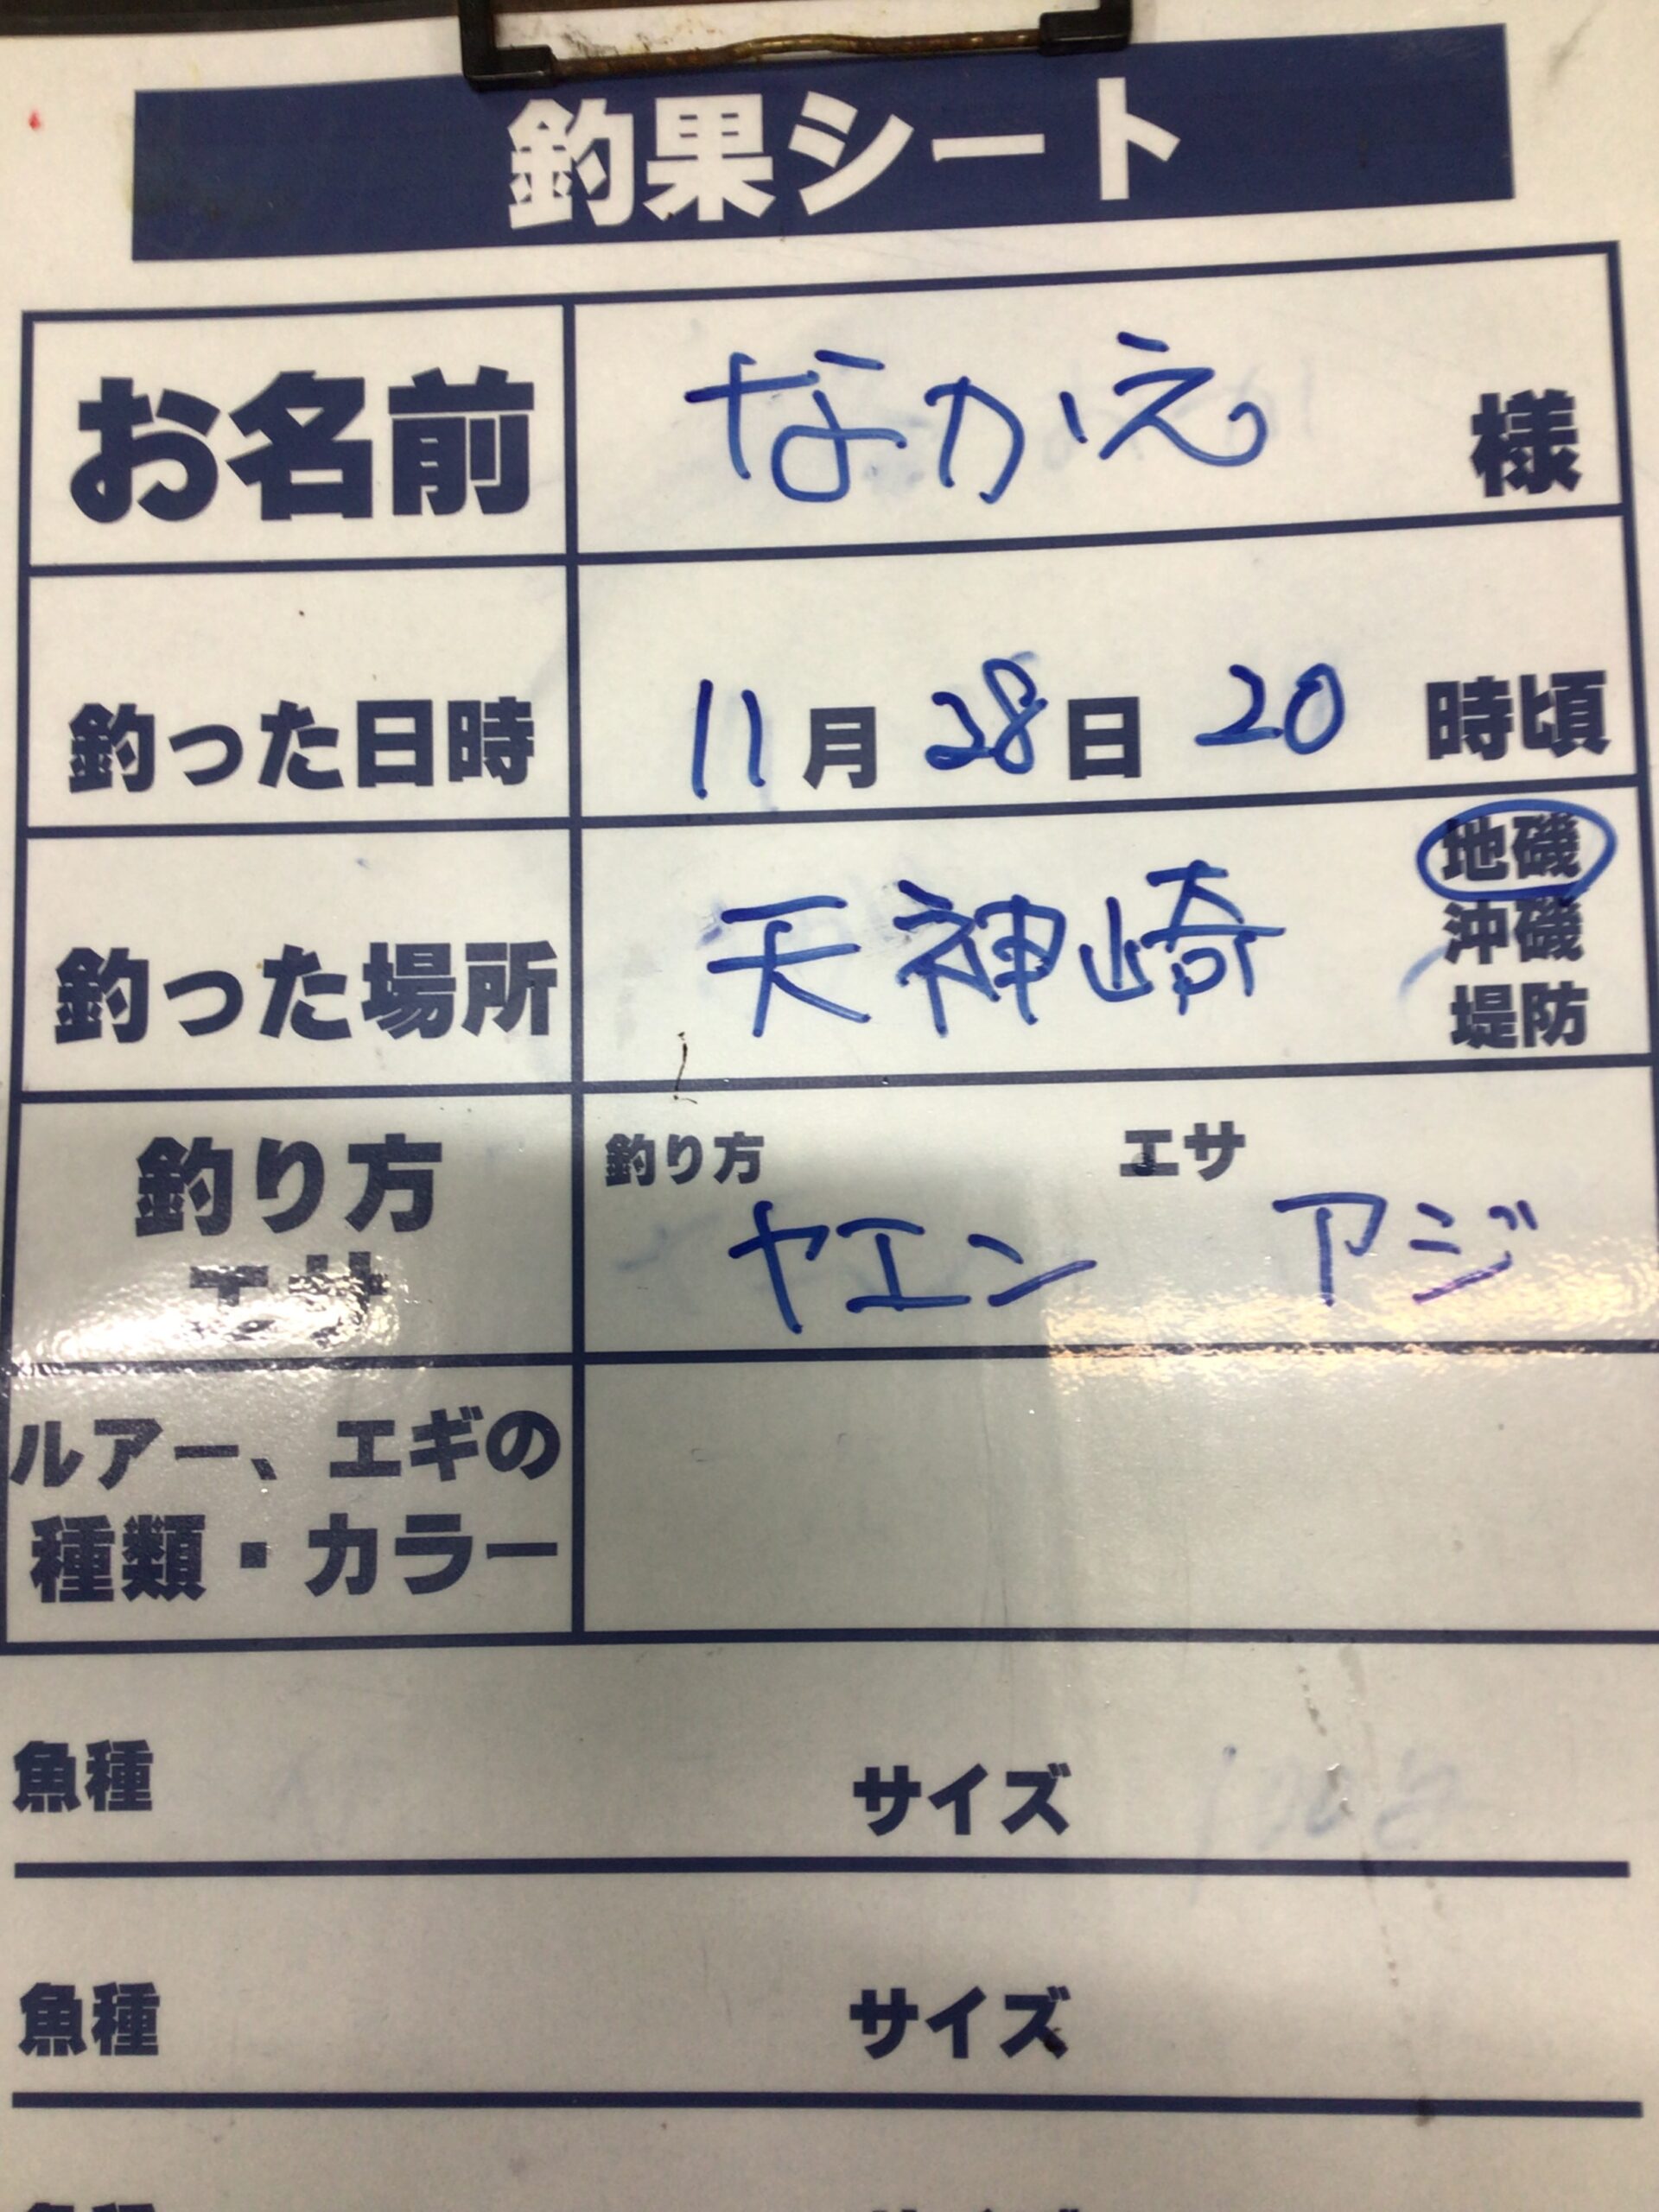 釣果シート
お名前 なかえ 様
釣った日時 11月28日 20時頃
釣った場所 天神崎 地磯
沖磯
堤防
釣り方 釣り方 エサ
エサ ヤエン アジ
ルアー、エギの
種類・カラー
魚種 サイズ
魚種 サイズ